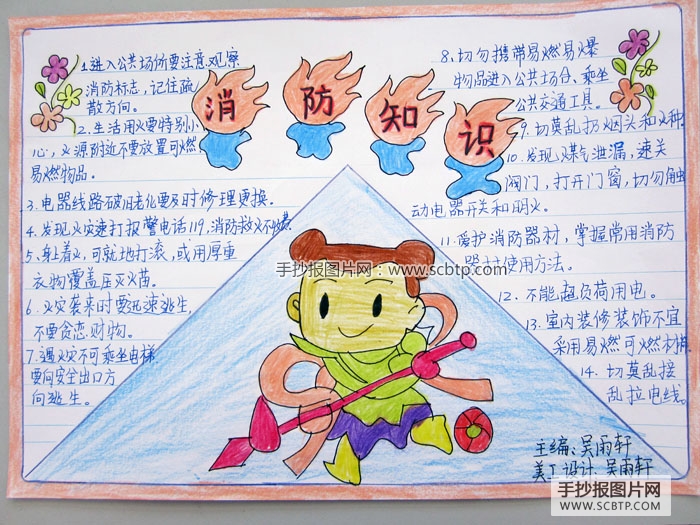 消防知识
1.进入公共场所要注意观察
消防标志，记住疏
散方向。
2.生活用火要特别小
心，火源附近不要放置可燃
易燃物品。
3.电器线路破旧老化要及时修理更换。
4.发现火灾速打报警电话119，消防救火不收费。
5.身上着火，可就地打滚，或用厚重
衣物覆盖压灭火苗。
6.火灾袭来时要迅速逃生，
不要贪恋财物。
7.遇火灾不可乘坐电梯
要向安全出口方
向逃生。
8.切勿携带易燃易爆
物品进入公共场合、乘坐
公共交通工具。
9.切莫乱扔烟头和火种。
10.发现煤气泄漏，速关
阀门，打开门窗，切勿触
动电器开关和明火。
11.爱护消防器材，掌握常用消防
器材使用方法。
12.不能超负荷用电。
13.室内装修装饰不宜
采用易燃可燃材料
14.切莫乱接
乱拉电线。
手抄报图片网：www.scbtp.com
主编：吴雨轩
美工设计：吴雨轩
手抄报图片网
WWW.SCBTP.COM